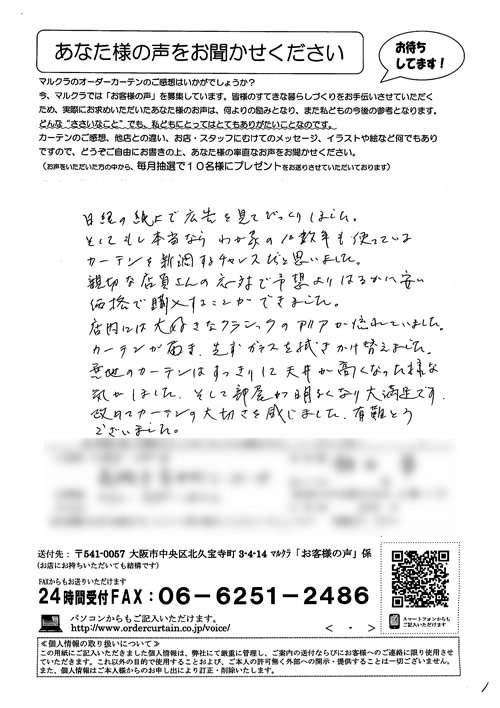 あなた様の声をお聞かせください
お待ち
してます!
マルクラのオーダーカーテンのご感想はいかがでしょうか?
今、マルクラでは「お客様の声」を募集しています。皆様のすてきな暮らしづくりをお手伝いさせていただく
ため、実際にお求めいただいたあなた様のお声は、何よりの励みとなり、また私どもの今後の参考となります。
どんな“ささいなこと”でも、私どもにとってはとてもありがたいことなのです。
カーテンのご感想、他店との違い、お店・スタッフにむけてのメッセージ、イラストや絵など何でもあり
ですので、どうぞご自由にお書きの上、あなた様の率直なお声をお聞かせください。
(お声をいただいた方の中から、毎月抽選で10名様にプレゼントをお送りさせていただいております)
日経の紙上で広告を見てびっくりしました。
そしてもし本当なら わが家の10数年も使っている
カーテンを新調するチャンスだと思いました。
親切な店員さんの応対で予想よりはるかに安い
価格で購入することができました。
店内には大好きなクラシックのアリアが流れていました。
カーテンが届き、先ずガラスを拭きかけ替えました。
無地のカーテンはすっきりして天井が高くなった様な
気がしました。そして部屋が明るくなり大満足です。
改めてカーテンの大切さを感じました。有難とう
ございました。
送付先:〒541-0057 大阪市中央区北久宝寺町3-4-14 マルクラ「お客様の声」係
(お店にお持ちいただいても結構です)
FAXからもお送りいただけます
24時間受付FAX:06-6251-2486
パソコンからもご記入いただけます。
http://www.ordercurtain.co.jp/voice/
< - >
スマートフォンからも
ご記入いただけます
≪個人情報の取り扱いについて≫
この用紙にご記入いただきました個人情報は、弊社にて厳重に管理し、ご案内の送付ならびにお客様へのご連絡に限り使用させ
ていただきます。これ以外の目的で使用することおよび、ご本人の許可無く外部への開示・提供することは一切ございません。
また、個人情報はご本人様からのお申し出により訂正・削除いたします。